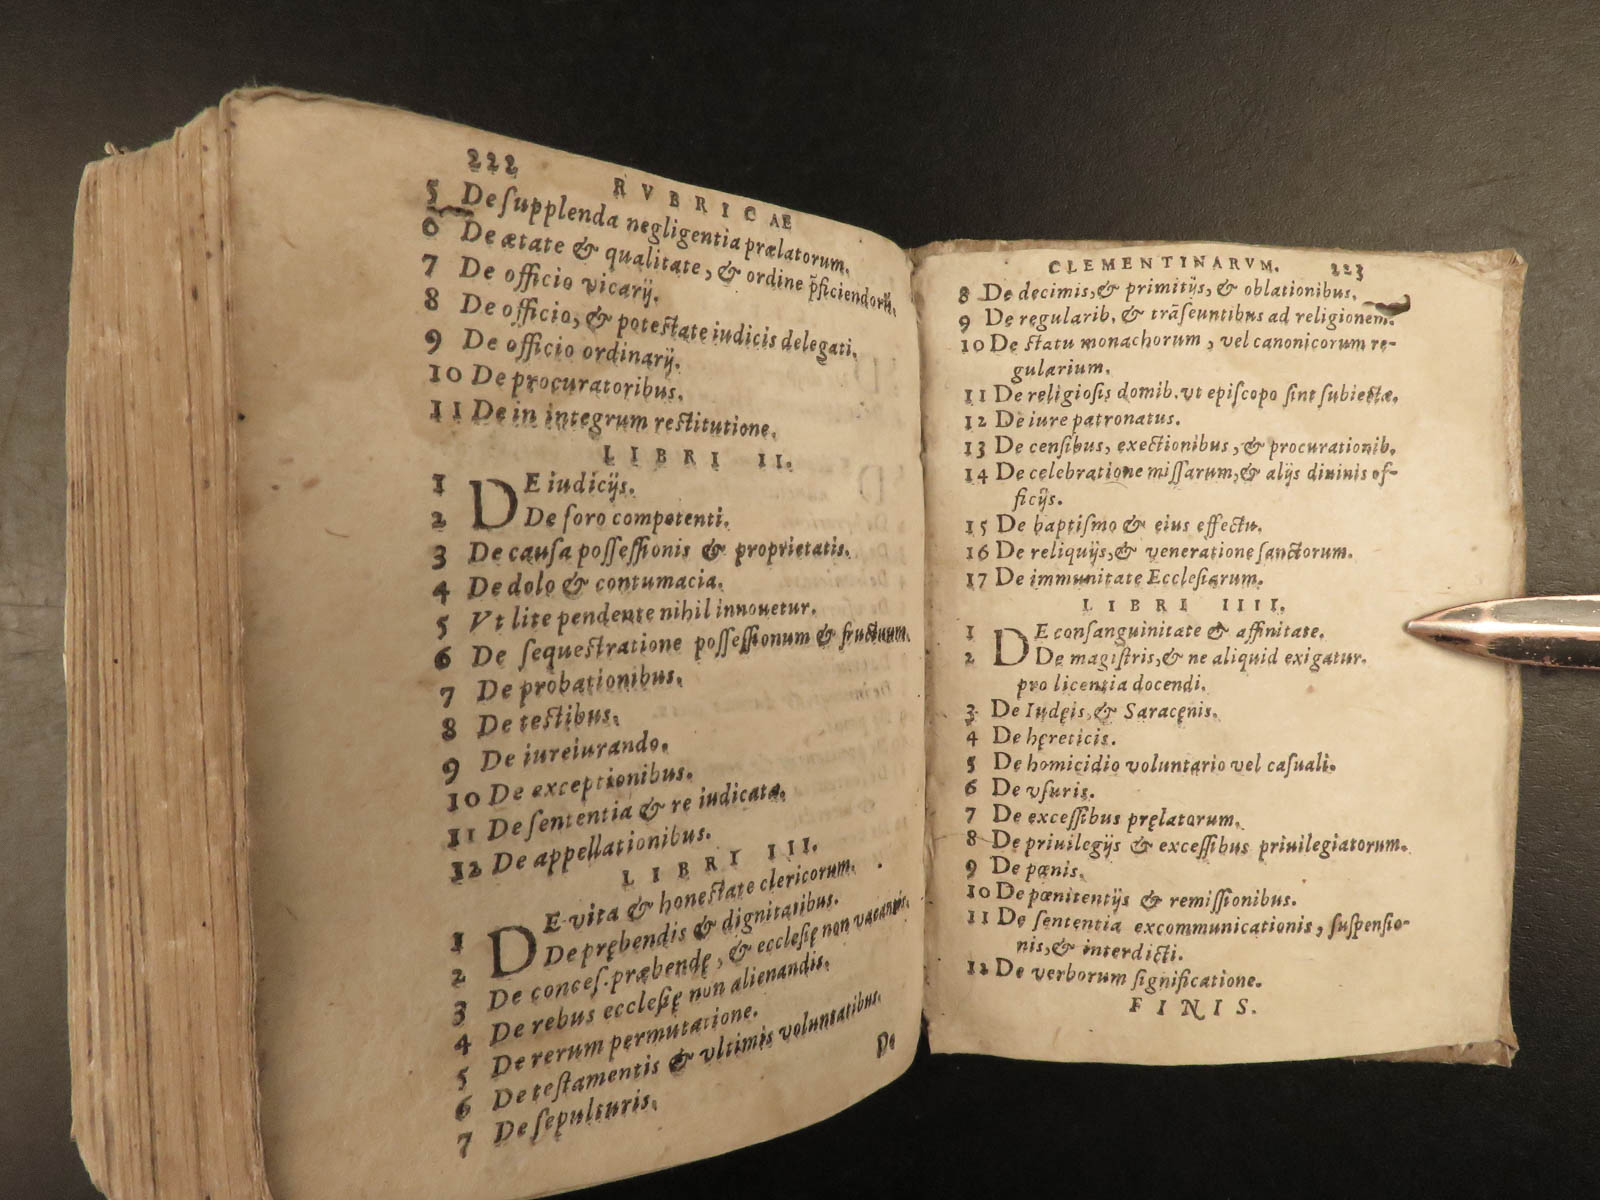 222
RVBRICAE
5 De supplenda negligentia prælatorum.
6 De ætate & qualitate, & ordine p̃ficiendorũ.
7 De officio vicarij.
8 De officio, & potestate iudicis delegati.
9 De officio ordinarij.
10 De procuratoribus.
11 De in integrum restitutione.
LIBRI II.
1 DE iudicijs.
2 De foro competenti.
3 De causa possessionis & proprietatis.
4 De dolo & contumacia.
5 Vt lite pendente nihil innouetur.
6 De sequestratione possessionum & fructuum.
7 De probationibus.
8 De testibus.
9 De iureiurando.
10 De exceptionibus.
11 De sententia & re iudicata.
12 De appellationibus.
LIBRI III.
1 DE vita & honestate clericorum.
2 De prębendis & dignitatibus.
3 De conces. præbendę, & ecclesię non vacantis.
4 De rebus ecclesię non alienandis.
5 De rerum permutatione.
6 De testamentis & vltimis voluntatibus.
7 De sepulturis.
De
CLEMENTINARVM. 223
8 De decimis, & primitijs, & oblationibus.
9 De regularib. & trãseuntibus ad religionem.
10 De statu monachorum, vel canonicorum re-
gularium.
11 De religiosis domib. vt episcopo sint subiectæ.
12 De iure patronatus.
13 De censibus, exectionibus, & procurationib.
14 De celebratione missarum, & alijs diuinis of-
ficijs.
15 De baptismo & eius effectu.
16 De reliquijs, & veneratione sanctorum.
17 De immunitate Ecclesiarum.
LIBRI IIII.
1 DE consanguinitate & affinitate.
2 De magistris, & ne aliquid exigatur.
pro licentia docendi.
3 De Iudęis, & Saracęnis.
4 De hęreticis.
5 De homicidio voluntario vel casuali.
6 De vsuris.
7 De excessibus pręlatorum.
8 De priuilegijs & excessibus priuilegiatorum.
9 De pœnis.
10 De pœnitentijs & remissionibus.
11 De sententia excommunicationis, suspensio-
nis, & interdicti.
12 De verborum significatione.
FINIS.